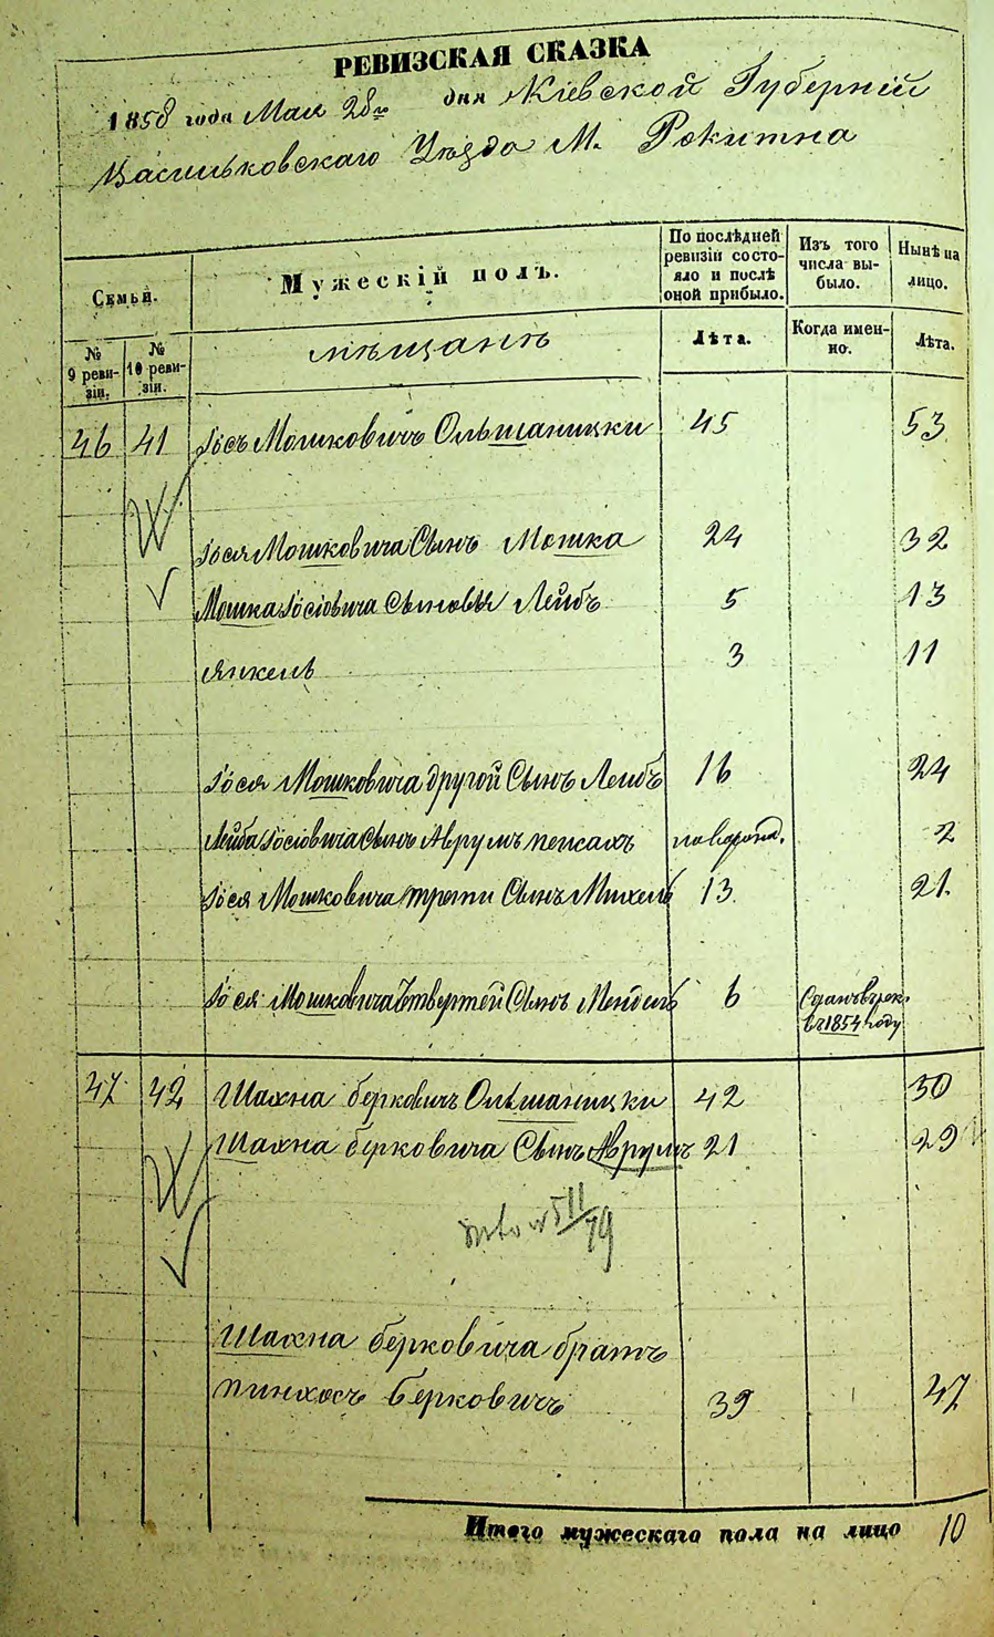 РЕВИЗСКАЯ СКАЗКА
1858 года Мая 28го дня Кіевской Губерніи
Васильковскаго Уѣзда М. Рокитна
Семьи.
Мужескій полъ.
По послѣдней ревизіи состояло и послѣ оной прибыло.
Изъ того числа выбыло.
Нынѣ на лицо.
№ 9 ревизіи.
№ 10 ревизіи.
мѣщанъ
Лѣта.
Когда именно.
Лѣта.
46 41 Іосъ Мошковичъ Ольшаницки 45 53
Іося Мошковича Сынъ Мошка 24 32
Мошка Іосіовича Сыновья Лейбъ 5 13
Янкель 3 11
Іося Мошковича другой Сынъ Лейбъ 16 24
Лейба Іосіовича сынъ Аврумъ пейсахъ 2
Іося Мошковича трети Сынъ Михель 13 21.
Іося Мошковича Четвертей Сынъ Мендель 6
въ 1854 году
47 42 Шахна берковичъ Ольшаницки 42 50
Шахна берковича Сынъ Аврумъ 21 29
11/79
Шахна берковича братъ
пинхосъ берковичъ 39 47
Итого мужескаго пола на лицо 10